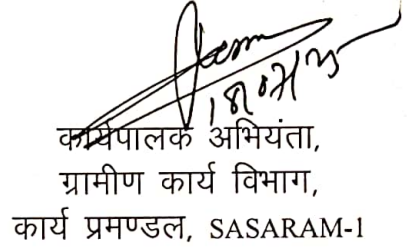 कार्यपालक अभियंता,
ग्रामीण कार्य विभाग,
कार्य प्रमण्डल, SASARAM-1